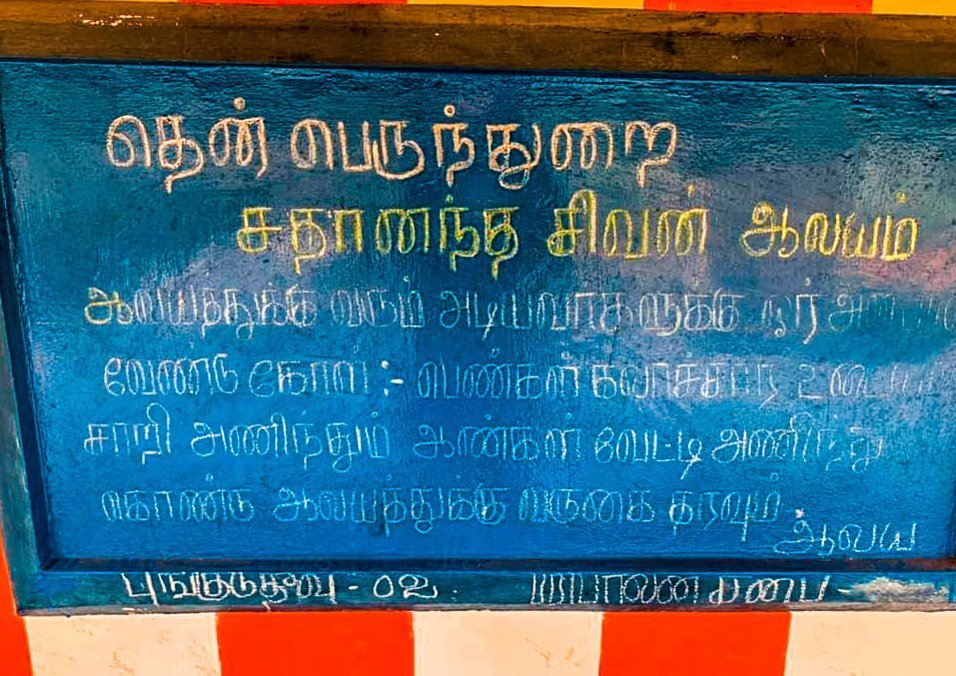 தென் பெருந்துறை
சதானந்த சிவன் ஆலயம்
ஆலயத்துக்கு வரும் அடியவர்களுக்கு ஓர்
வேண்டு கோள் :- பெண்கள் கலாச்சார
சாறி அணிந்தும் ஆண்கள் வேட்டி அணிந்து
கொண்டு ஆலயத்துக்கு வருகை தரவும்
ஆலய
புங்குடுதீவு - 02. பரிபாலன சபை -